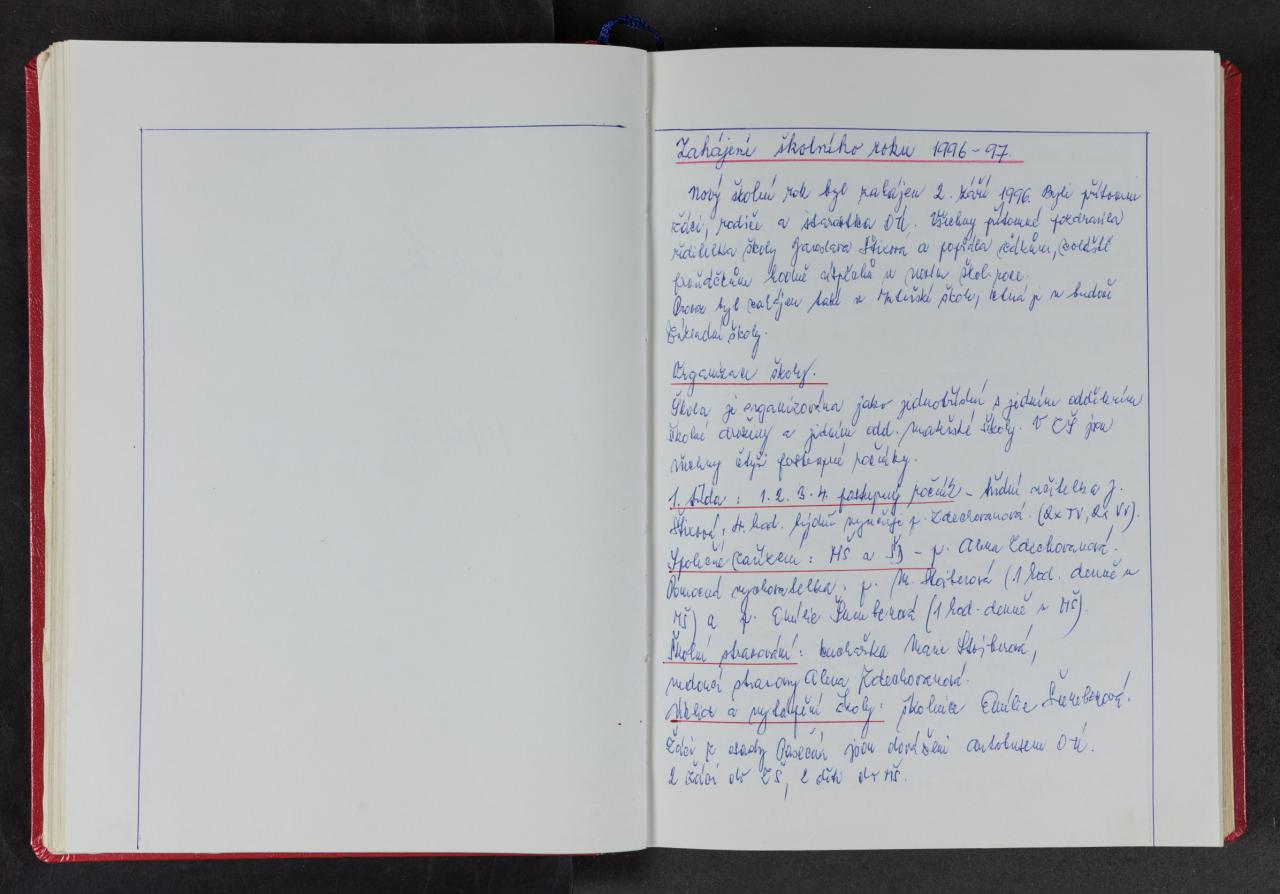 Zahájení školního roku 1996-97.
Nový školní rok byl zahájen 2. září 1996. Byli přítomni
žáci, rodiče a starostka OÚ. Všechny přítomné pozdravila
ředitelka školy Jaroslava a popřála žákům, zvláště
prvňáčkům hodně úspěchů v novém škol. roce.
Provoz byl zahájen také v Mateřské škole, která je v budově
Základní školy.
Organizace školy.
Škola je organizována jako jednotřídní s jedním oddělením
školní družiny a jedním odd. mateřské školy. V ZŠ jsou
všechny čtyři postupné ročníky.
1. třída: 1. 2. 3. 4. postupný ročník - třídní učitelka J.
4. hod. týdně vyučuje p. Zdechovanová. (2x TV, 2x VV).
Společné zařízení: MŠ a ŠD - p. Alena Zdechovanová.
Pomocná vychovatelka: p. M. Stojberová (1 hod. denně v
MŠ) a p. Emílie (1 hod. denně v MŠ).
Školní stravování: kuchařka Marie Stojberová,
vedoucí stravovny Alena Zdechovanová.
Úklid a vytápění školy: školnice Emílie
Žáci z osady Pasečná jsou dováženi autobusem OÚ.
2 žáci do ZŠ, 2 děti do MŠ.